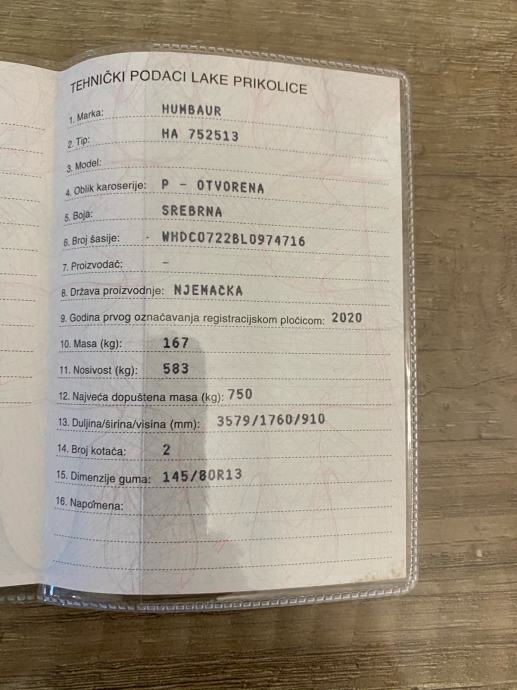 TEHNIČKI PODACI LAKE PRIKOLICE
1. Marka: HUMBAUR
2. Tip: HA 752513
3. Model:
4. Oblik karoserije: P - OTVORENA
5. Boja: SREBRNA
6. Broj šasije: WHDC0722BL0974716
7. Proizvođač: -
8. Država proizvodnje: NJEMAČKA
9. Godina prvog označavanja registracijskom pločicom: 2020
10. Masa (kg): 167
11. Nosivost (kg): 583
12. Najveća dopuštena masa (kg): 750
13. Duljina/širina/visina (mm): 3579/1760/910
14. Broj kotača: 2
15. Dimenzije guma: 145/80R13
16. Napomena: